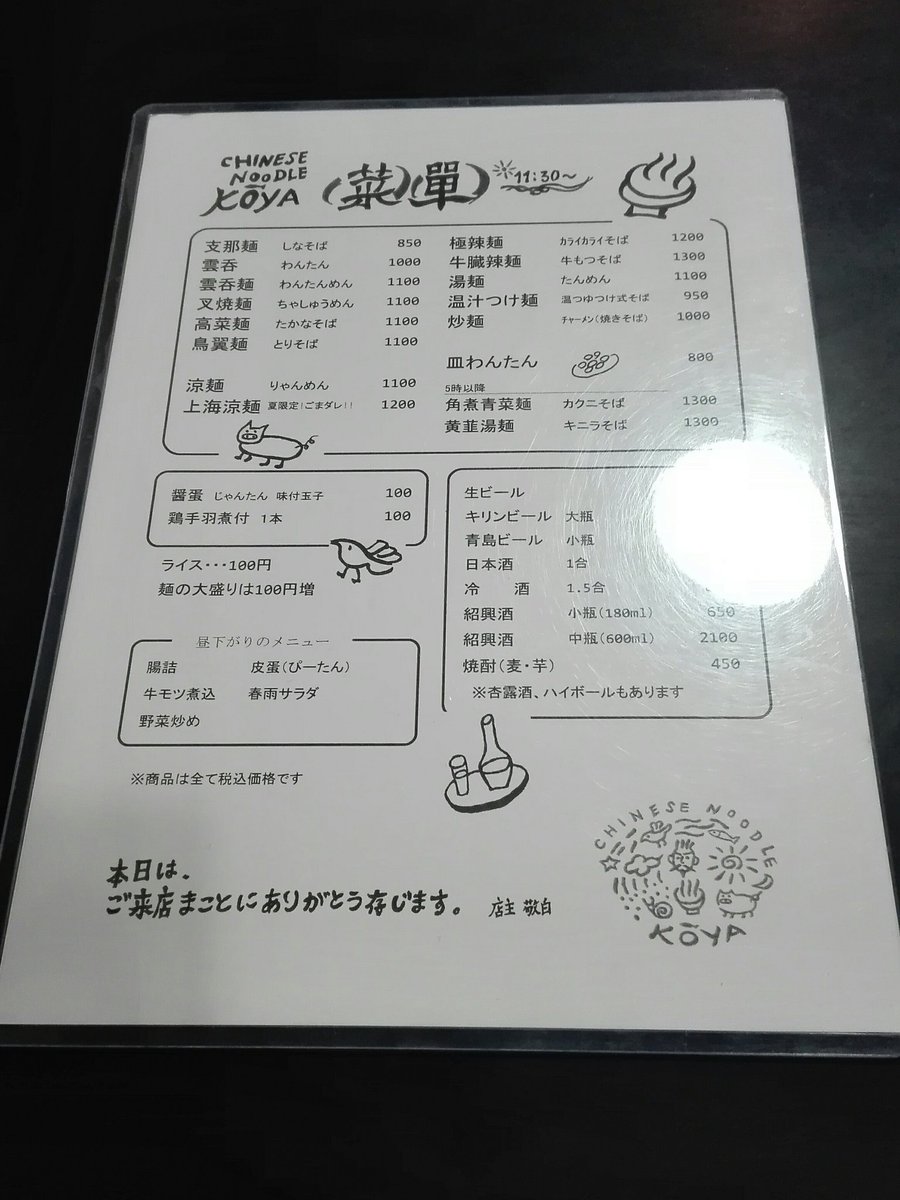 CHINESE
NOODLE
KŌYA
(菜)(單) 11:30〜
支那麺 しなそば 850
雲呑 わんたん 1000
雲呑麺 わんたんめん 1100
叉焼麺 ちゃしゅうめん 1100
高菜麺 たかなそば 1100
鳥翼麺 とりそば 1100
涼麺 りゃんめん 1100
上海涼麺 夏限定!ごまダレ!! 1200
極辣麺 カライカライそば 1200
牛臓辣麺 牛もつそば 1300
湯麺 たんめん 1100
温汁つけ麺 温つゆつけ式そば 950
炒麺 チャーメン(焼きそば) 1000
皿わんたん 800
5時以降
角煮青菜麺 カクニそば 1300
黄韮湯麺 キニラそば 1300
醤蛋 じゃんたん 味付玉子 100
鶏手羽煮付 1本 100
ライス・・・100円
麺の大盛りは100円増
昼下がりのメニュー
腸詰 皮蛋(ぴーたん)
牛モツ煮込 春雨サラダ
野菜炒め
※商品は全て税込価格です
生ビール
キリンビール 大瓶
青島ビール 小瓶
日本酒 1合
冷 酒 1.5合
紹興酒 小瓶(180ml) 650
紹興酒 中瓶(600ml) 2100
焼酎(麦・芋) 450
※杏露酒、ハイボールもあります
本日は、
ご来店まことにありがとう存じます。 店主 敬白
CHINESE NOODLE
KŌYA